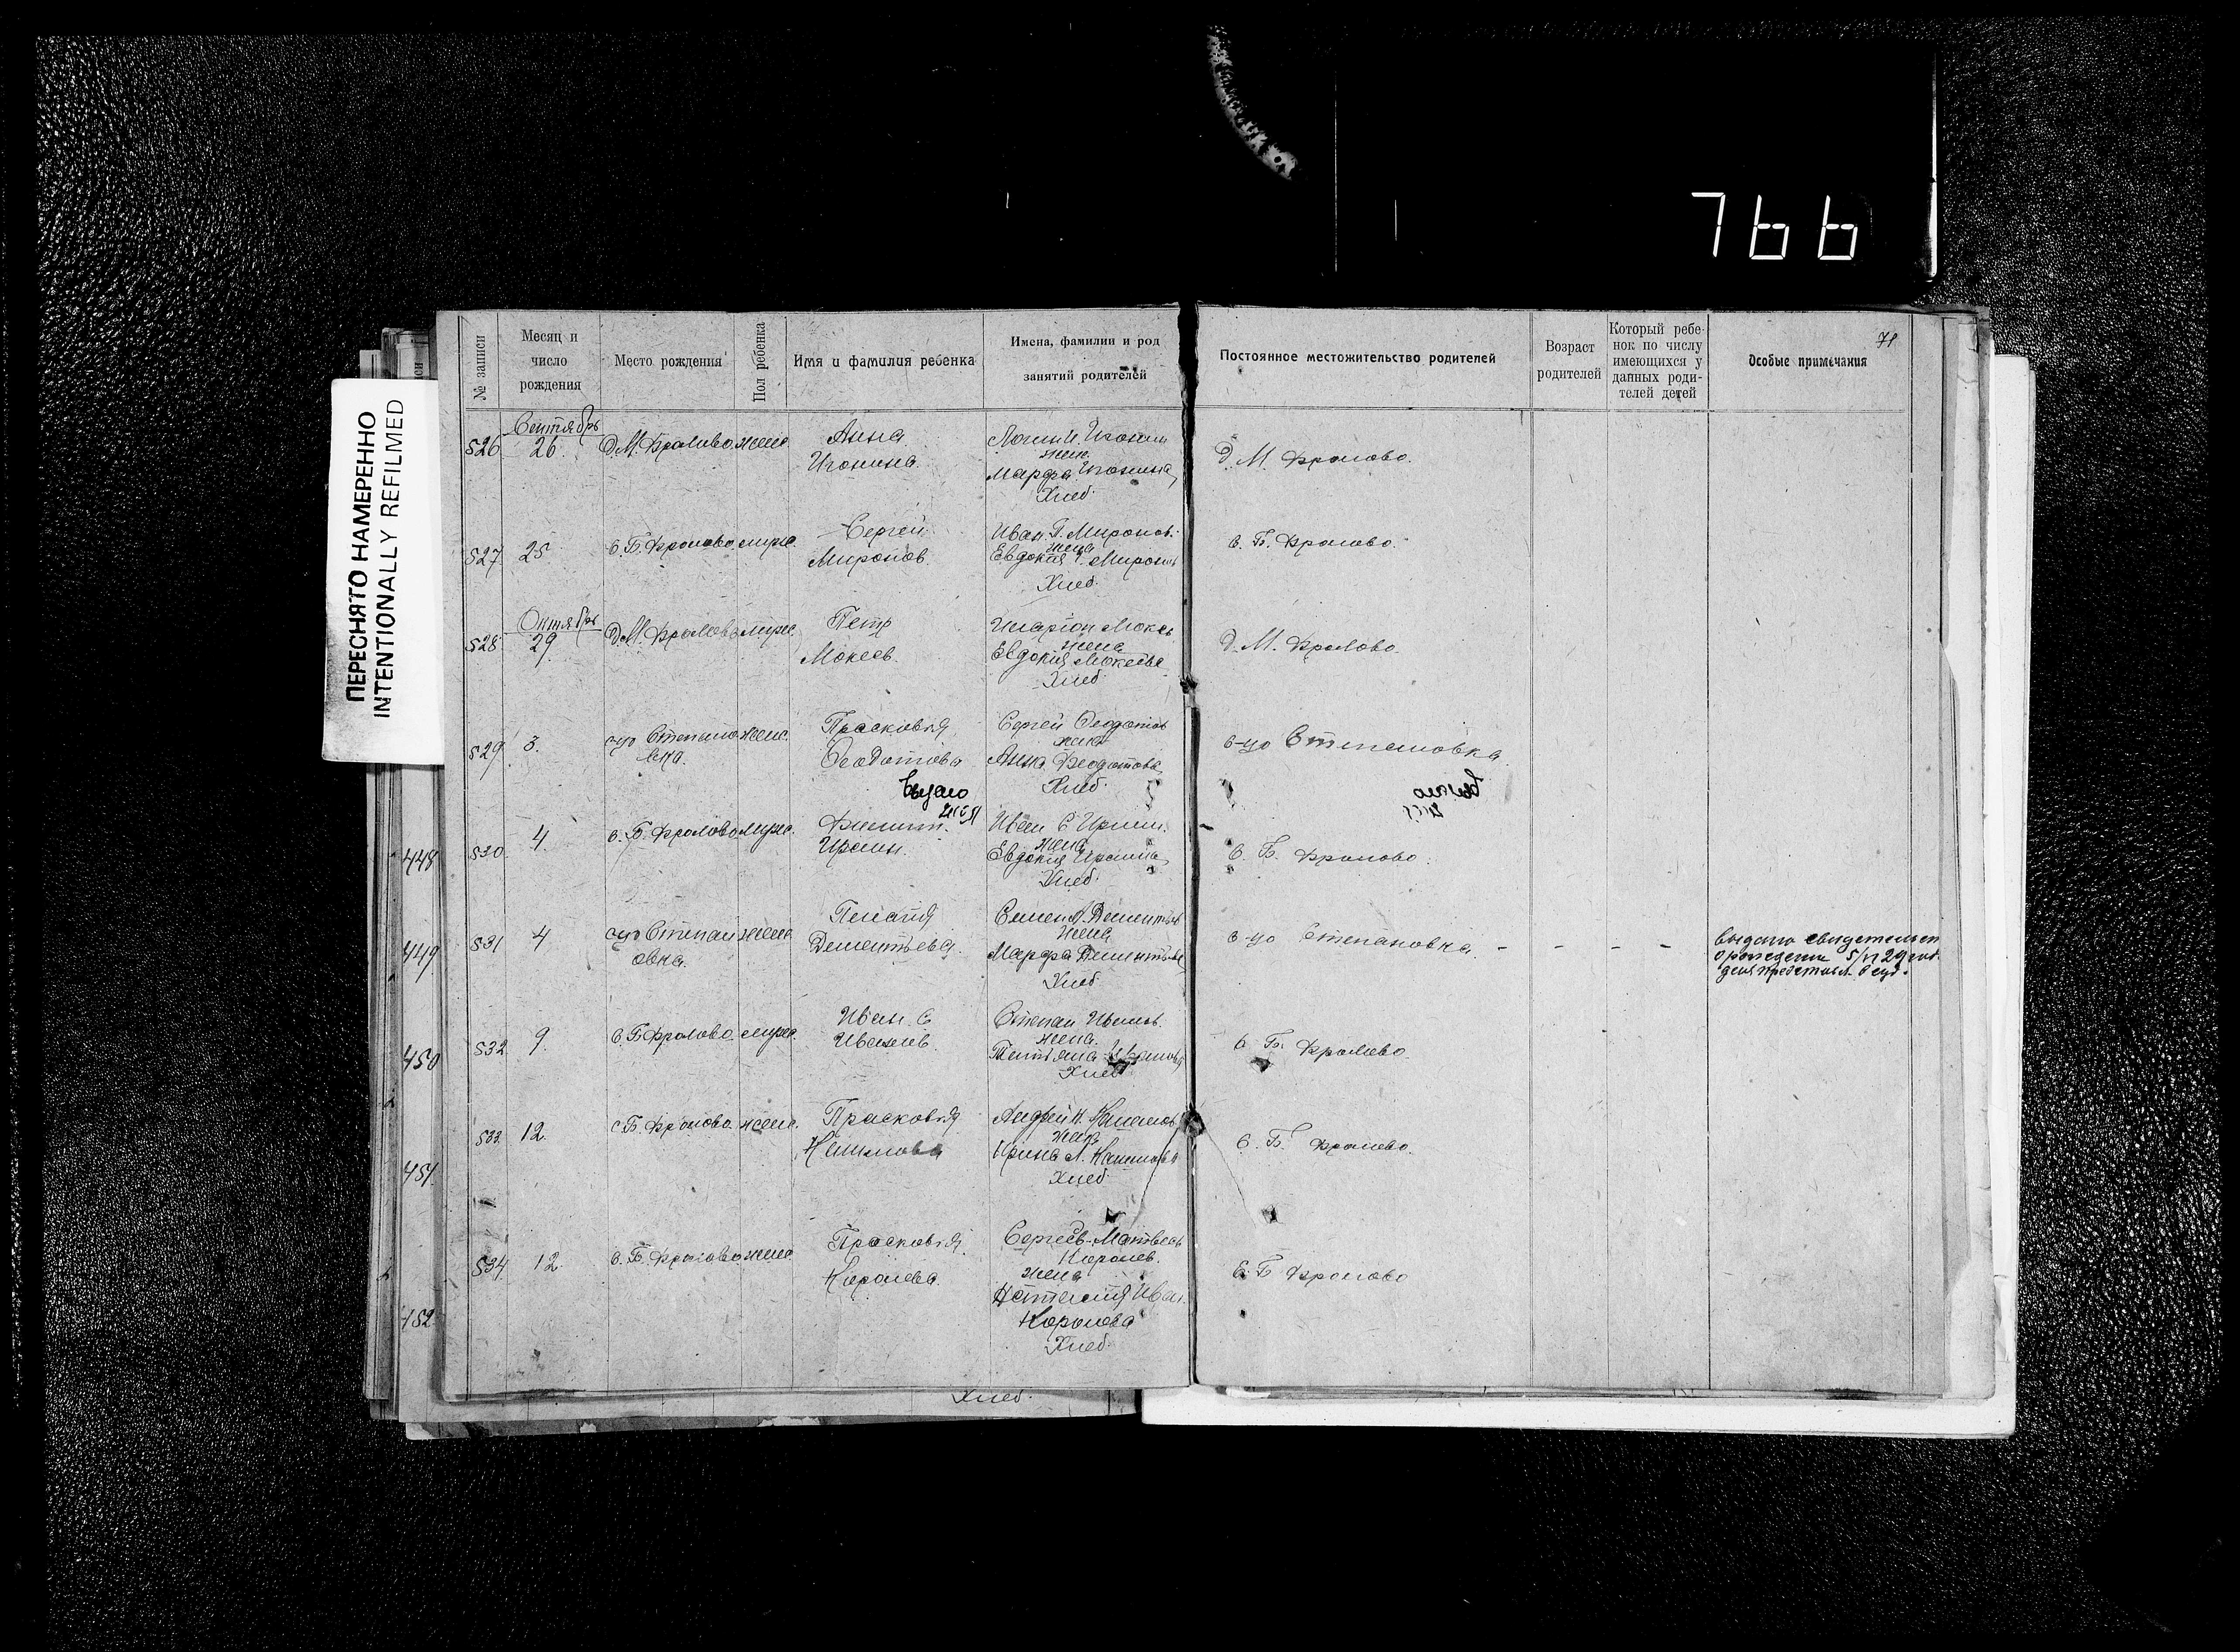 766
ПЕРЕСНЯТО НАМЕРЕННО
INTENTIONALLY REFILMED
71
№ записи
Месяц и число рождения
Место рождения
Пол ребенка
Имя и фамилия ребенка
Имена, фамилии и род занятий родителей
Постоянное местожительство родителей
Возраст родителей
Который ребе-
нок по числу
имеющихся у
данных роди-
телей детей
Особые примечания
Сентябрь
526 26 Д.М. Фролово женс.
Анна
Игонина
Игонин
жен.
Марфа Игонина
Хлеб.
Д. М. Фролово.
527 25 с. Б. Фролово мужс.
Сергей
Миронов.
Иван Г. Миронов.
жена
Евдокия Миронов
Хлеб.
с. Б. Фролово.
Октябрь
528 29 Д.М. Фролово мужс.
Петр
Мокеев.
Иларион Мокев
жена
Евдокия Мокеева
Хлеб
Д. М. Фролово.
529 3. с-цо Степано
вка. женс.
Прасковья
Феодотова
Сергей Феодотов
жена
Анна Феодотова
Хлеб.
с-цо Степановка.
448
530 4 с. Б. Фролово мужс.
Филип.
Ирсин.
Иван С
жена
Евдокия
Хлеб.
с. Б. Фролово.
449
531 4 с-цо Степан
овка. женс
Пелагия
Дементьева.
Семен А. Дементьев
жена
Марфа Дементьев
Хлеб
с-цо Степановка. - - - -
выдано свидетельст
о рождении 5/VI 29
450
532 9. с Б Фролово. мужс.
Иван С
Иванов.
Степан Иванов.
жена.
Татьяна Иванова
Хлеб
с. Б. Фролово.
451
533 12. с Б. Фролово. женс.
Прасковья
Андрей Н.
жена
Ирина Л.
Хлеб
с. Б. Фролово.
452
534 12. с. Б. Фролово женс
Прасковья.
Королева.
Сергеев Матвеев
Королев.
жена
Наталия Иван.
Королева
Хлеб.
с. Б Фролово
Хлеб.